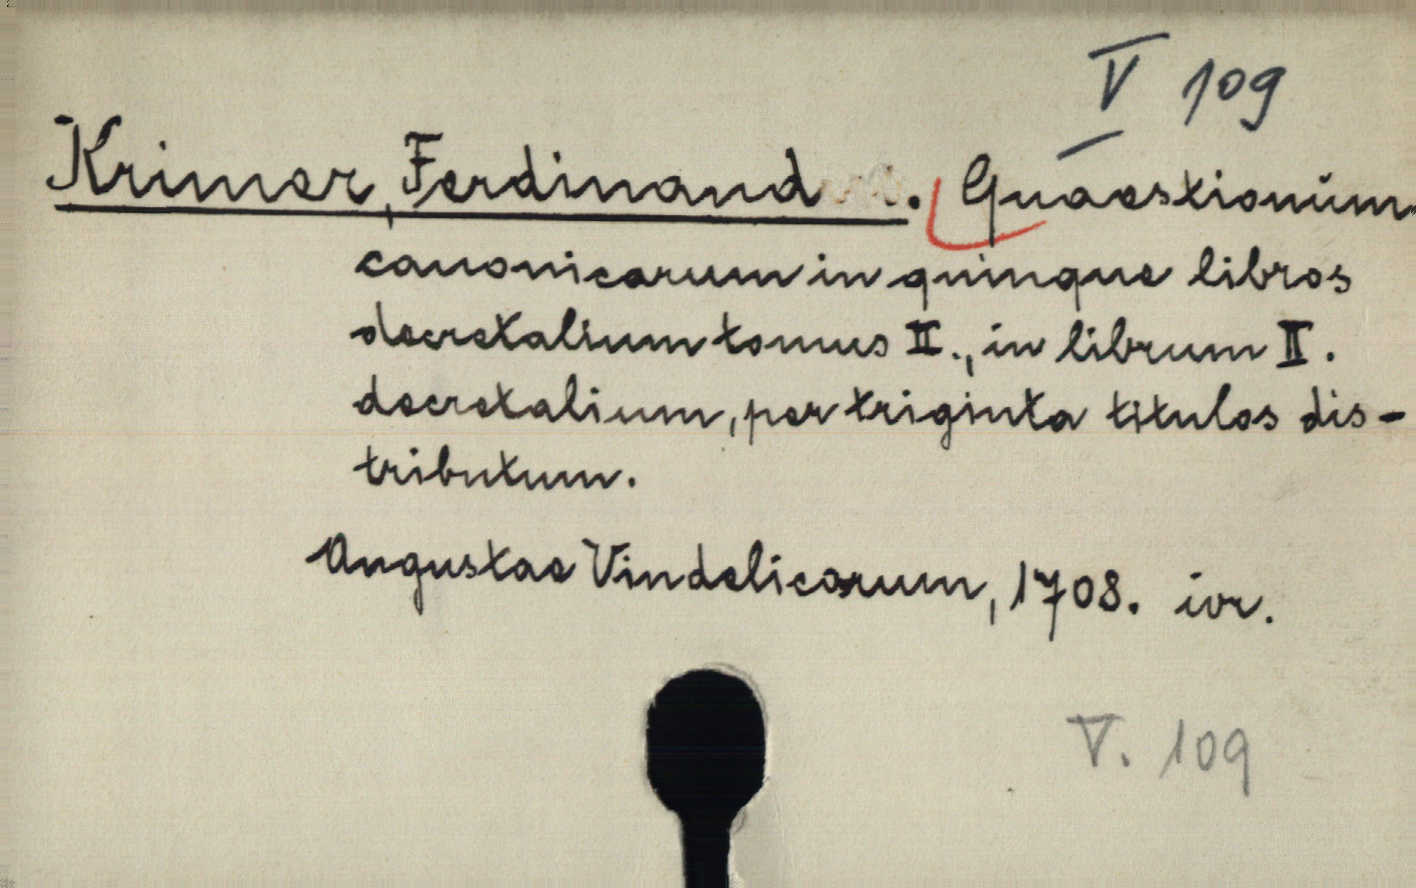 V 109
Krimer, Ferdinand. Quaestionum
canonicarum in quinque libros
decretalium tomus II., in librum II.
decretalium, per triginta titulos dis-
tributum.
Augustae Vindelicorum, 1708. ivr.
V. 109